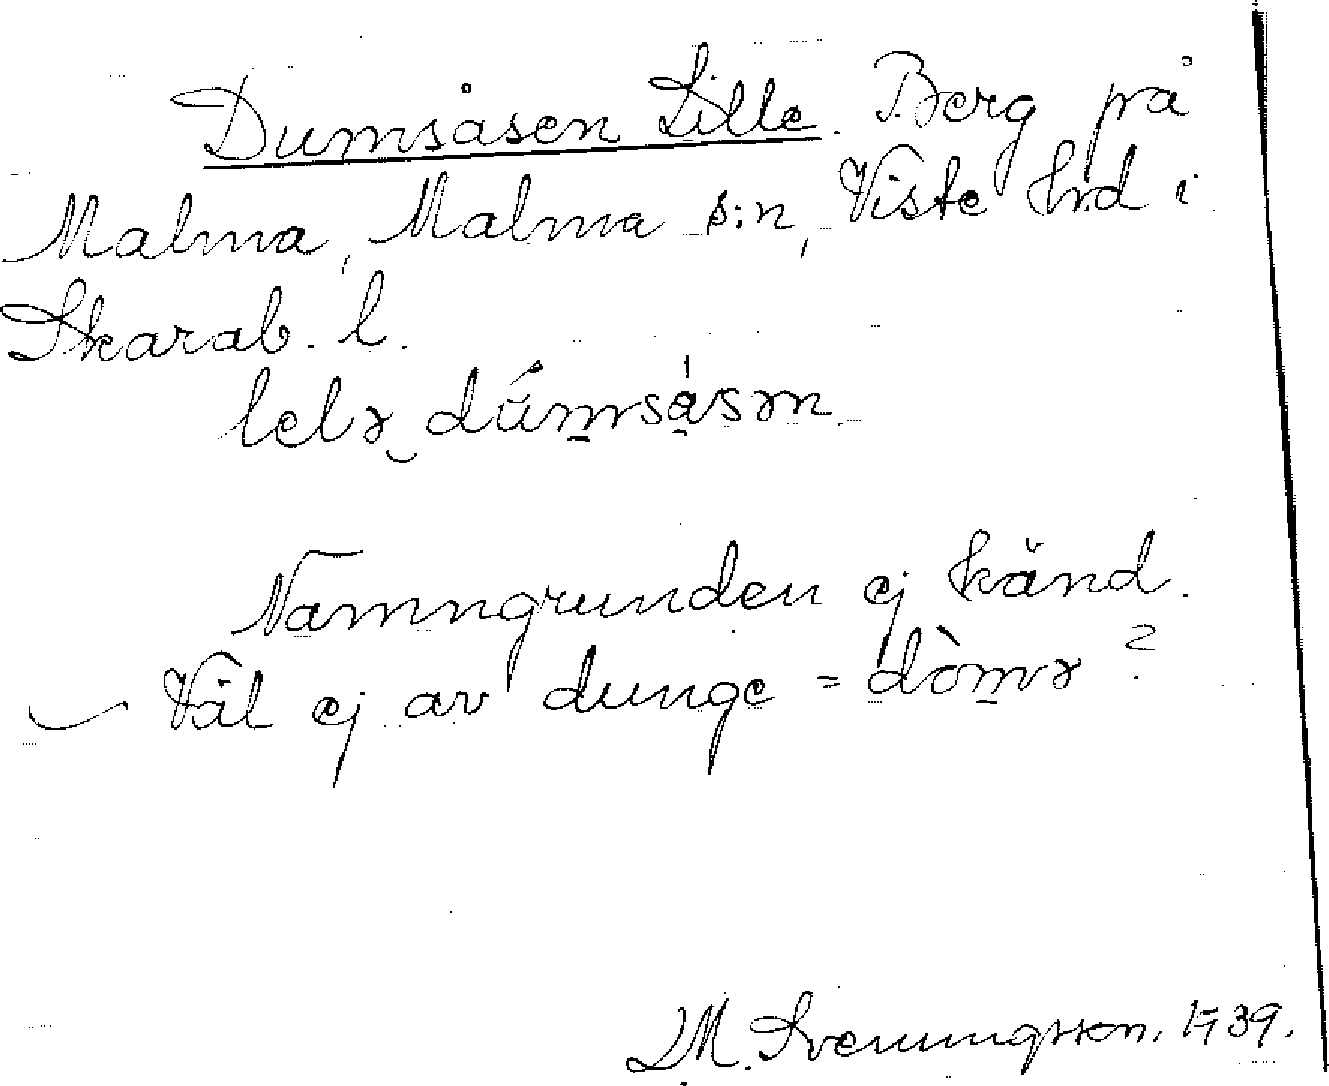 Dumsåsen Lille. Berg på
Malma, Malma s:n, Viste hrd i
Skarab. l.
lelə dúmsåsən
Namngrunden ej känd.
Väl ej av dunge = dòmə ?
M. Svenungsson. 1939.